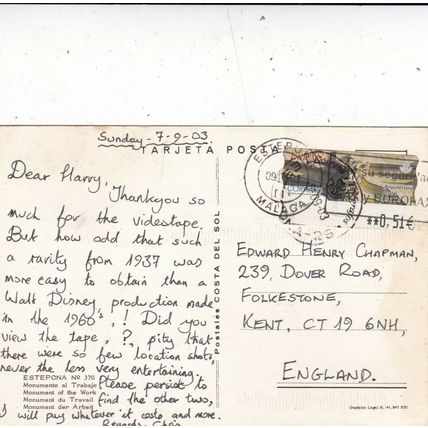 Sunday - 7-9-03.
TARJETA POSTAL
Dear Harry,
Thankyou so
much for the videotape.
But how odd that such
a rarity from 1937 was
more easy to obtain than a
Walt Disney production made
in the 1960's! Did you
view the tape, ?, pity that
there were so few location shots,
never the less very entertaining.
Please persist to
find the other two,
I will pay whatever it costs and more.
Regards, Chris
ESTEPONA No 370
Monumento al Trabajo
Monument of the Work
Monument du Travail
Monument der Arbeit
Postales COSTA DEL SOL
ESTEPONA
MALAGA
**0,51€
EDWARD HENRY CHAPMAN,
239, DOVER ROAD,
FOLKESTONE,
KENT, CT 19 6NH,
ENGLAND.